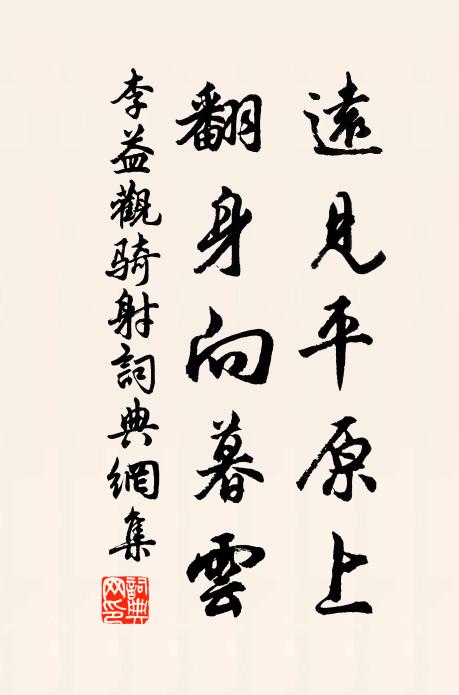 遠見平原上
翻身向暮雲
李益觀骑射詞典網集
詞典網印